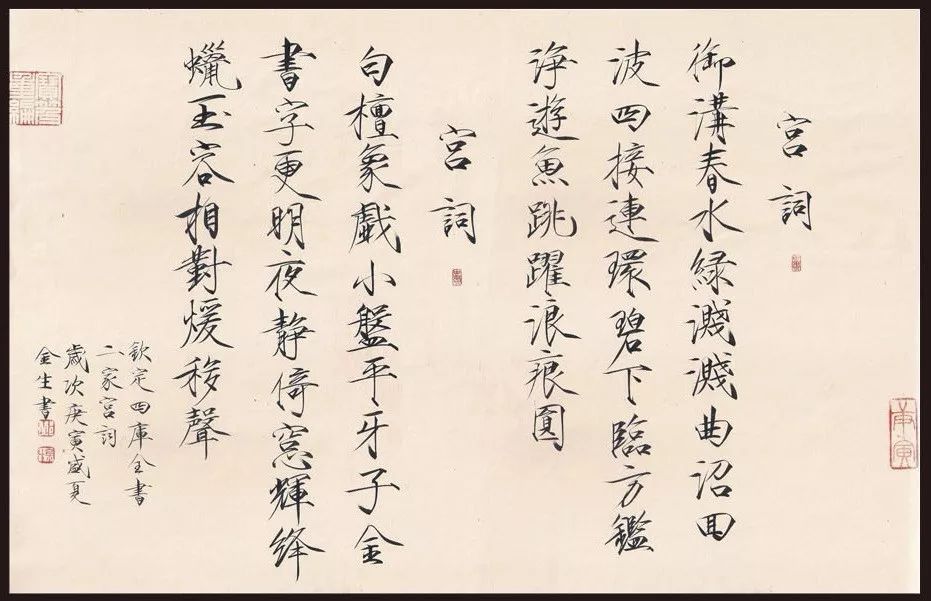 宮詞
御溝春水綠濺濺曲沼回
波四接連環碧下臨方鑑
淨遊魚跳躍浪痕圓
宮詞
白檀象戲小盤平牙子金
書字更明夜靜倚窓輝絳
蠟玉容相對煖移聲
欽定四庫全書
二家宮詞
歲次庚寅盛夏
金生書
庚寅